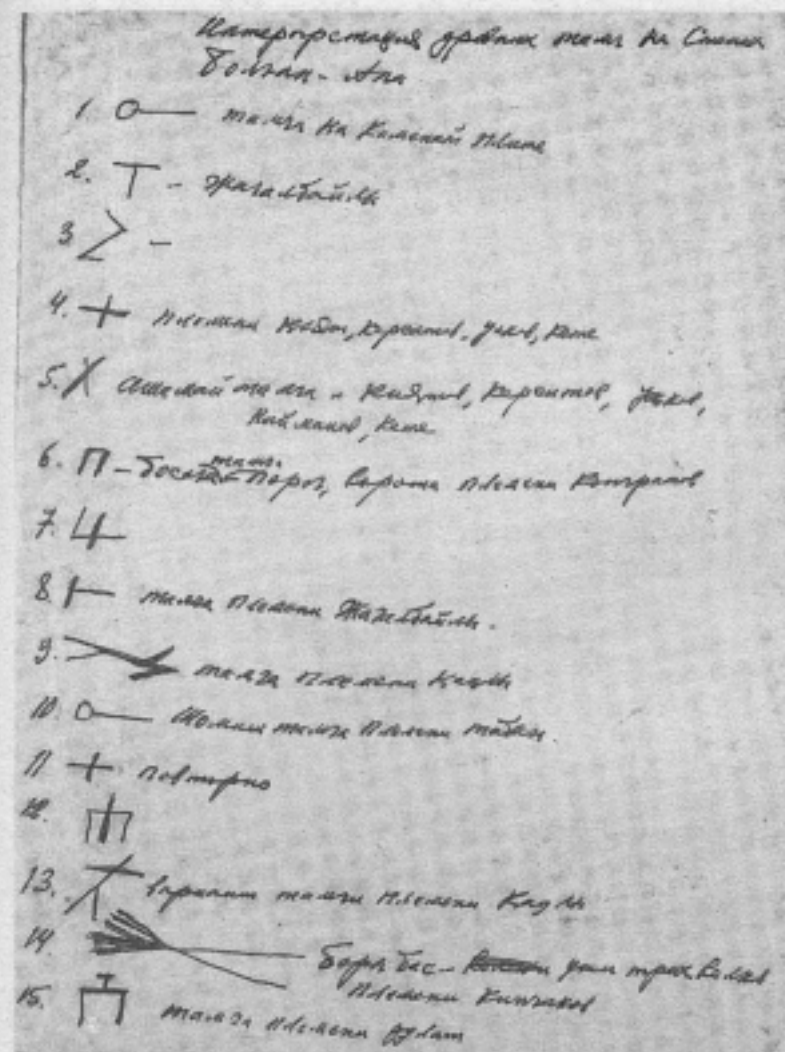 Интерпретация древних тамг на Стенах
Болган-Ана
1. тамга на Каменной плите
2. - Жагалбайлы
3 -
4. племени Кереитов, Уаков, Кете
5. Ашамай тамга - Кереитов, Уаков,
Найманов, Кете
6. - босага тамга - Порог, Ворота племени Конгратов
7.
8. тамга племени Жагалбайлы.
9. тамга племени Канлы
10. тамга племени
11 повторно
12.
13. вариант тамги племени
14 бас - уши трех волков
племени Кипчаков
15. тамга племени Дулат